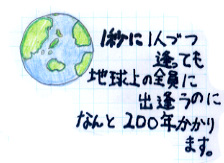 1秒に1人づつ
逢っても
地球上の全員に
出逢うのに
なんと200年かかり
ます。